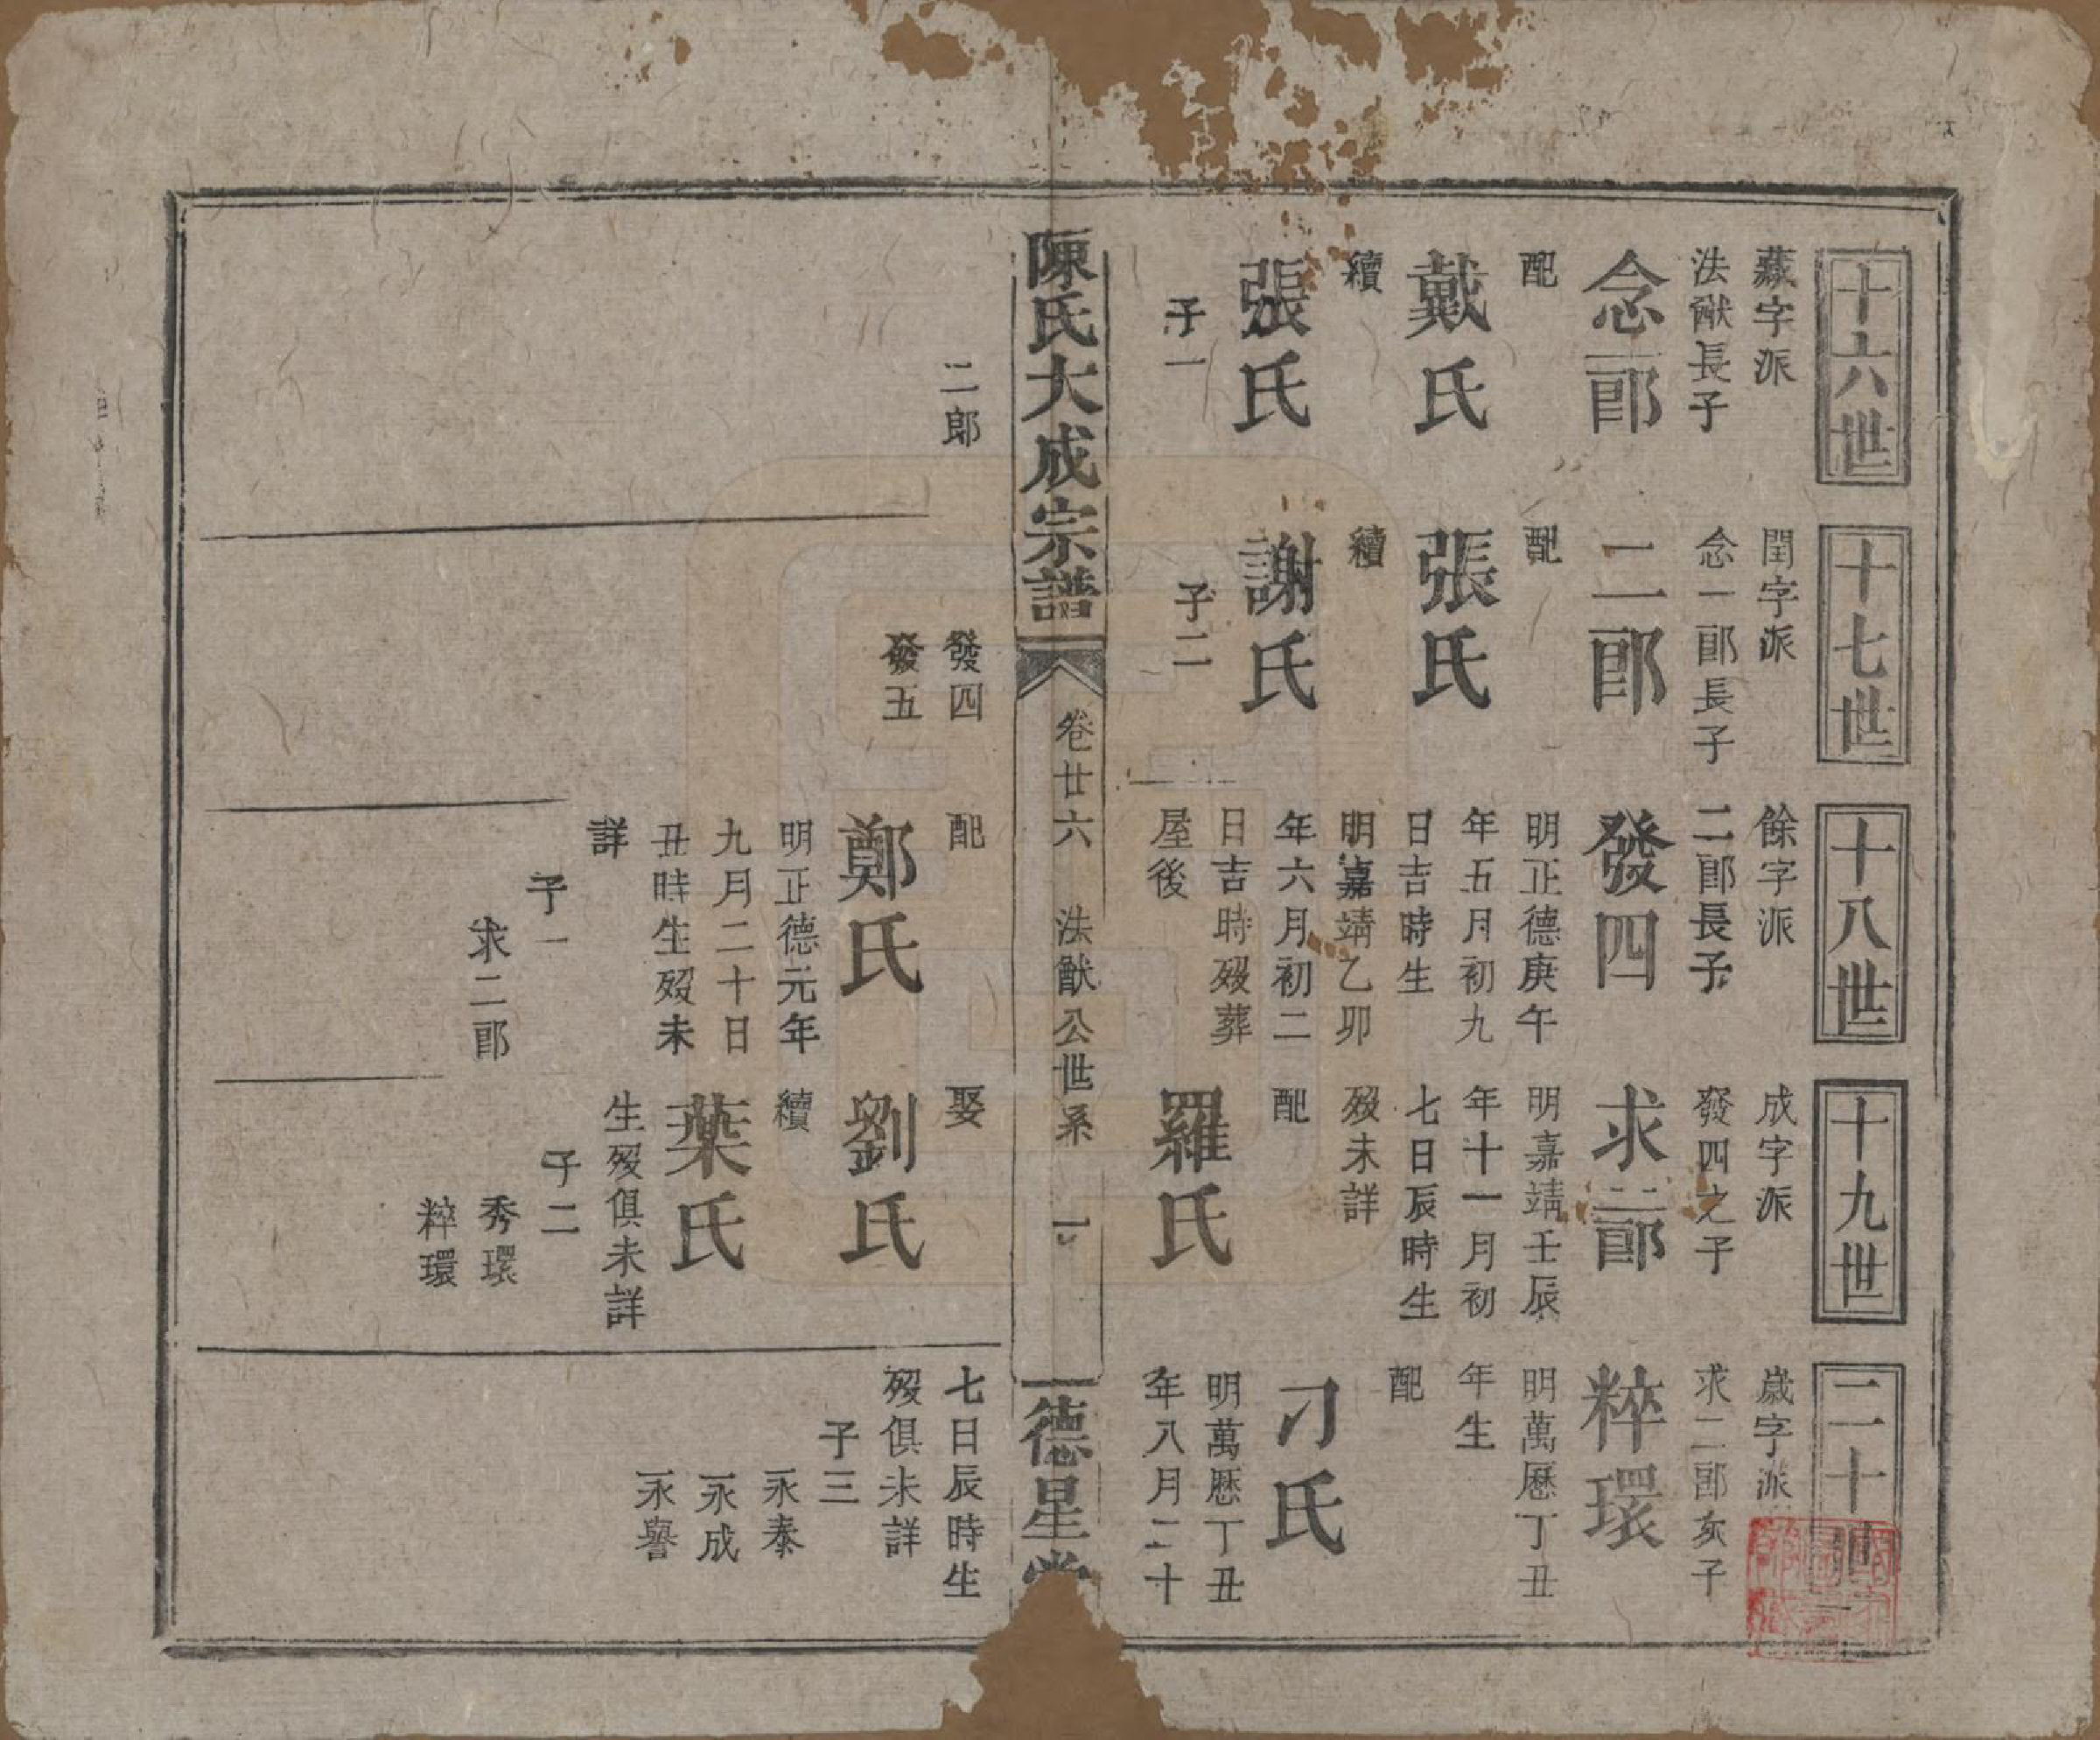 十六世
藏字派
法猷長子
念一郎
配
戴氏
續
張氏
子一
二郎
十七世
閏字派
念一郎長子
二郎
配
張氏
續
謝氏
子二
發四
發五
十八世
餘字派
二郎長子
發四
明正德庚午
年五月初九
日吉時生
明嘉靖乙卯
年六月初二
日吉時歿葬
屋後
配
鄭氏
明正德元年
九月二十日
丑時生歿未
詳
子一
求二郎
十九世
成字派
發四之子
求二郎
明嘉靖壬辰
年十一月初
七日辰時生
歿未詳
配
羅氏
娶
劉氏
續
葉氏
生歿俱未詳
子二
秀環
粹環
二十世
歲字派
求二郎次子
粹環
明萬歷丁丑
年生
配
刁氏
明萬歷丁丑
年八月二十
七日辰時生
歿俱未詳
子三
永泰
永成
永譽
陳氏大成宗譜
卷廿六
法猷公世系
一
德星堂